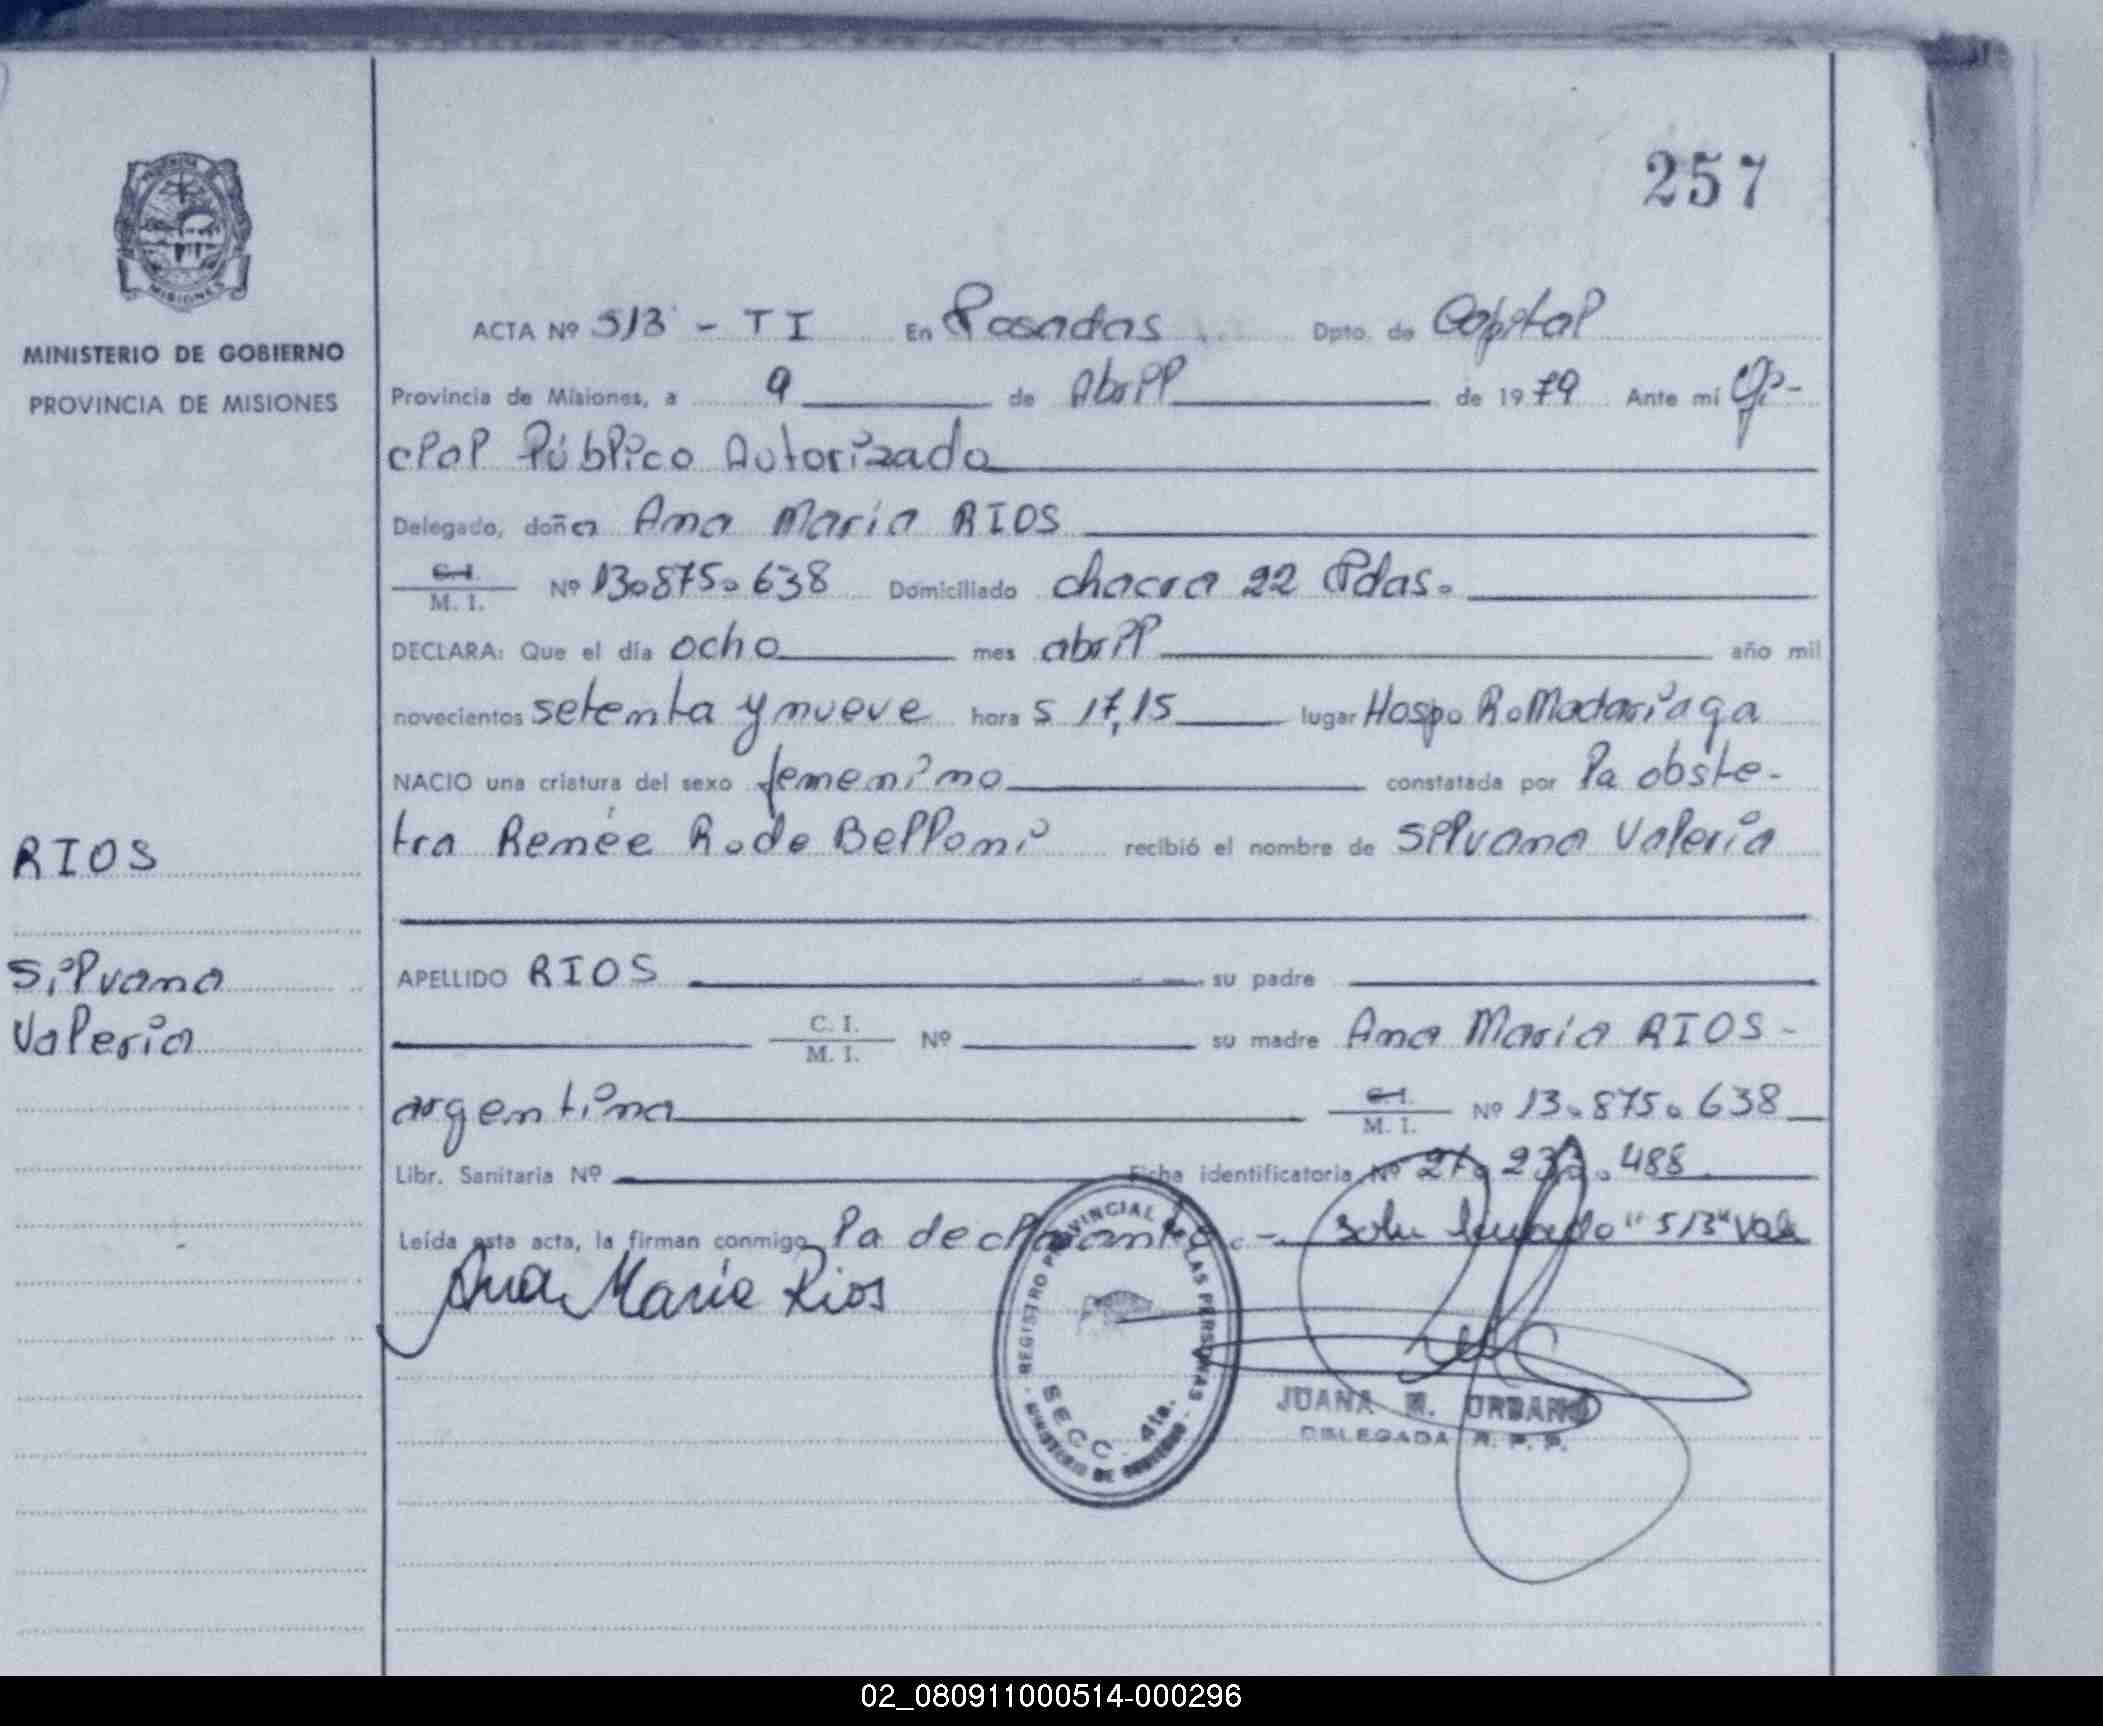 257
MISIONES
MINISTERIO DE GOBIERNO
PROVINCIA DE MISIONES
ACTA Nº 513 - T I En Posadas Dpto. de Capital
Provincia de Misiones, a 9 de Abril de 1979 Ante mí Ofi-
cial Público Autorizado
Delegado, doña Ana María RIOS
C.I. M. I. Nº 13.875.638 Domiciliado chacra 22 Pdas.
DECLARA: Que el día ocho mes abril año mil
novecientos setenta y nueve hora s 17,15 lugar Hosp. R. Madariaga
NACIO una criatura del sexo femenino constatada por la obste-
tra Renée R. de Belloni recibió el nombre de Silvana Valeria
RIOS
Silvana
Valeria
APELLIDO RIOS su padre
C. I. M. I. Nº su madre Ana María RIOS -
argentina C.I. M. I. Nº 13.875.638
Libr. Sanitaria Nº Ficha identificatoria Nº 27.233.488
Leída esta acta, la firman conmigo la declarante. - "513" Vale
Ana María Rios
REGISTRO PROVINCIAL DE LAS PERSONAS
SECC. 4ta.
MINISTERIO DE GOBIERNO
JUANA URBANO
DELEGADA R. P. P.
02_080911000514-000296